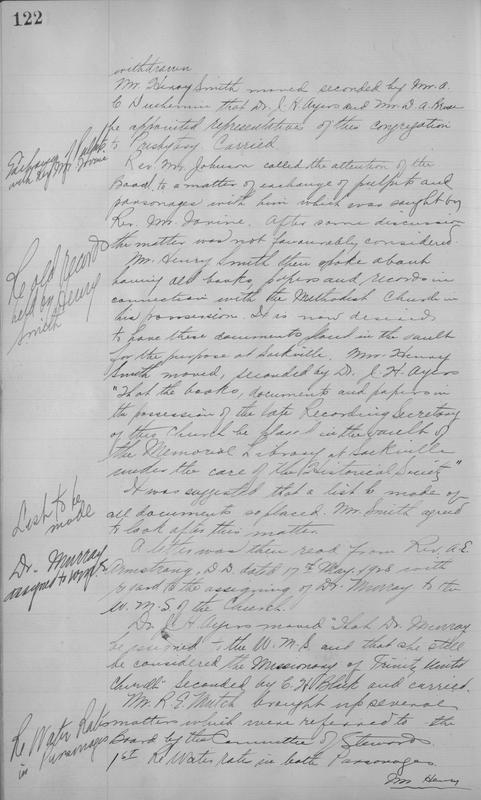 122
withdrawn
Mr. Henry Smith moved seconded by Mr. A.
C Duchemin that Dr. J. H. Ayers and Mr. D. A. Bruce
be appointed representatives of this congregation
to Presbytery. Carried
Exchange of Pulpits
with Rev Mr.
Rev. Mr. Johnson called the attention of the
Board to a matter of exchange of pulpits and
parsonages with him which was sought by
Rev. Mr. After some discussion
the matter was not favourably considered.
Re old records
held by Henry
Smith
Mr. Henry Smith then spoke about
having old books, papers and records in
connection with the Methodist Church in
his possession. It is now desired
to have these documents placed in the vault
for the purpose at Sackville. Mr. Henry
Smith moved, seconded by Dr. J. H. Ayers
"That the books, documents and papers in
the possession of the late Recording Secretary
of this Church be placed in the vault of
the Memorial Library at Sackville
under the care of the Historical Society"
List to be
made
It was suggested that a list be made of
all documents so placed. Mr. Smith agreed
to look after this matter.
Dr. Murray
assigned to W.M.S
A letter was then read from Rev. A. E.
Armstrong, D.D. dated 17th May, 1928 with
regard to the assigning of Dr. Murray to the
W. M. S. of the Church.
Dr. J. H. Ayers moved "That Dr. Murray
be assigned to the W. M. S. and that she still
be considered the Missionary of Trinity United
Church" seconded by C. H. Black and carried.
Re Water Rates
in Parsonages
Mr. R. E. Mutch brought up several
matters which were referred to the
Board by the Committee of Stewards
1st Re Water rate in both Parsonages.
Mr Henry